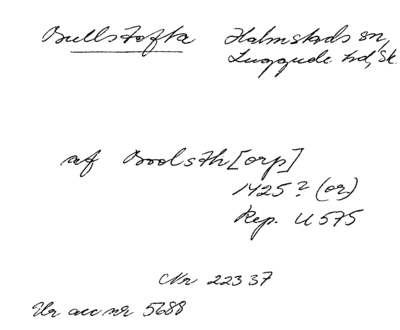 Bullstofta Halmstads sn,
Luggude hd, Sk.
af Boolsth[orp]
1425? (or)
Rep. U 575
Nr 22337
Ur acc nr 5688